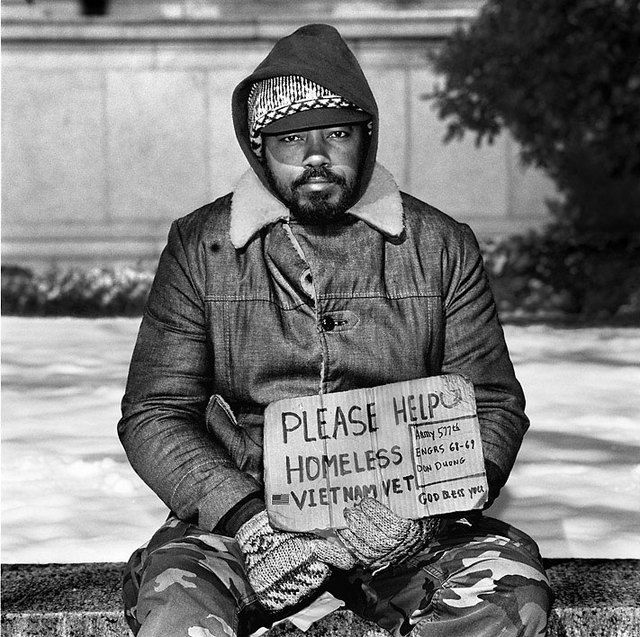 PLEASE HELP
HOMELESS
VIETNAM VET
Army 577th
ENGRS 68-69
DON DUONG
GOD BLESS you